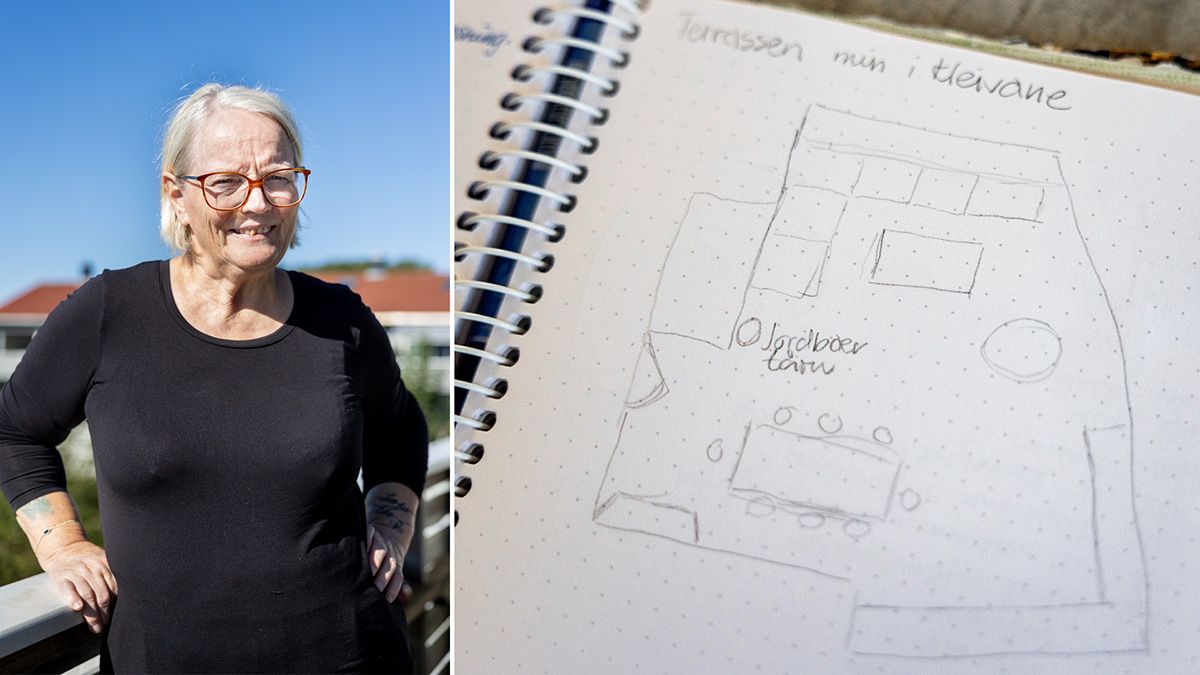 Terrassen min i Kleivane
Jordbær
tårn